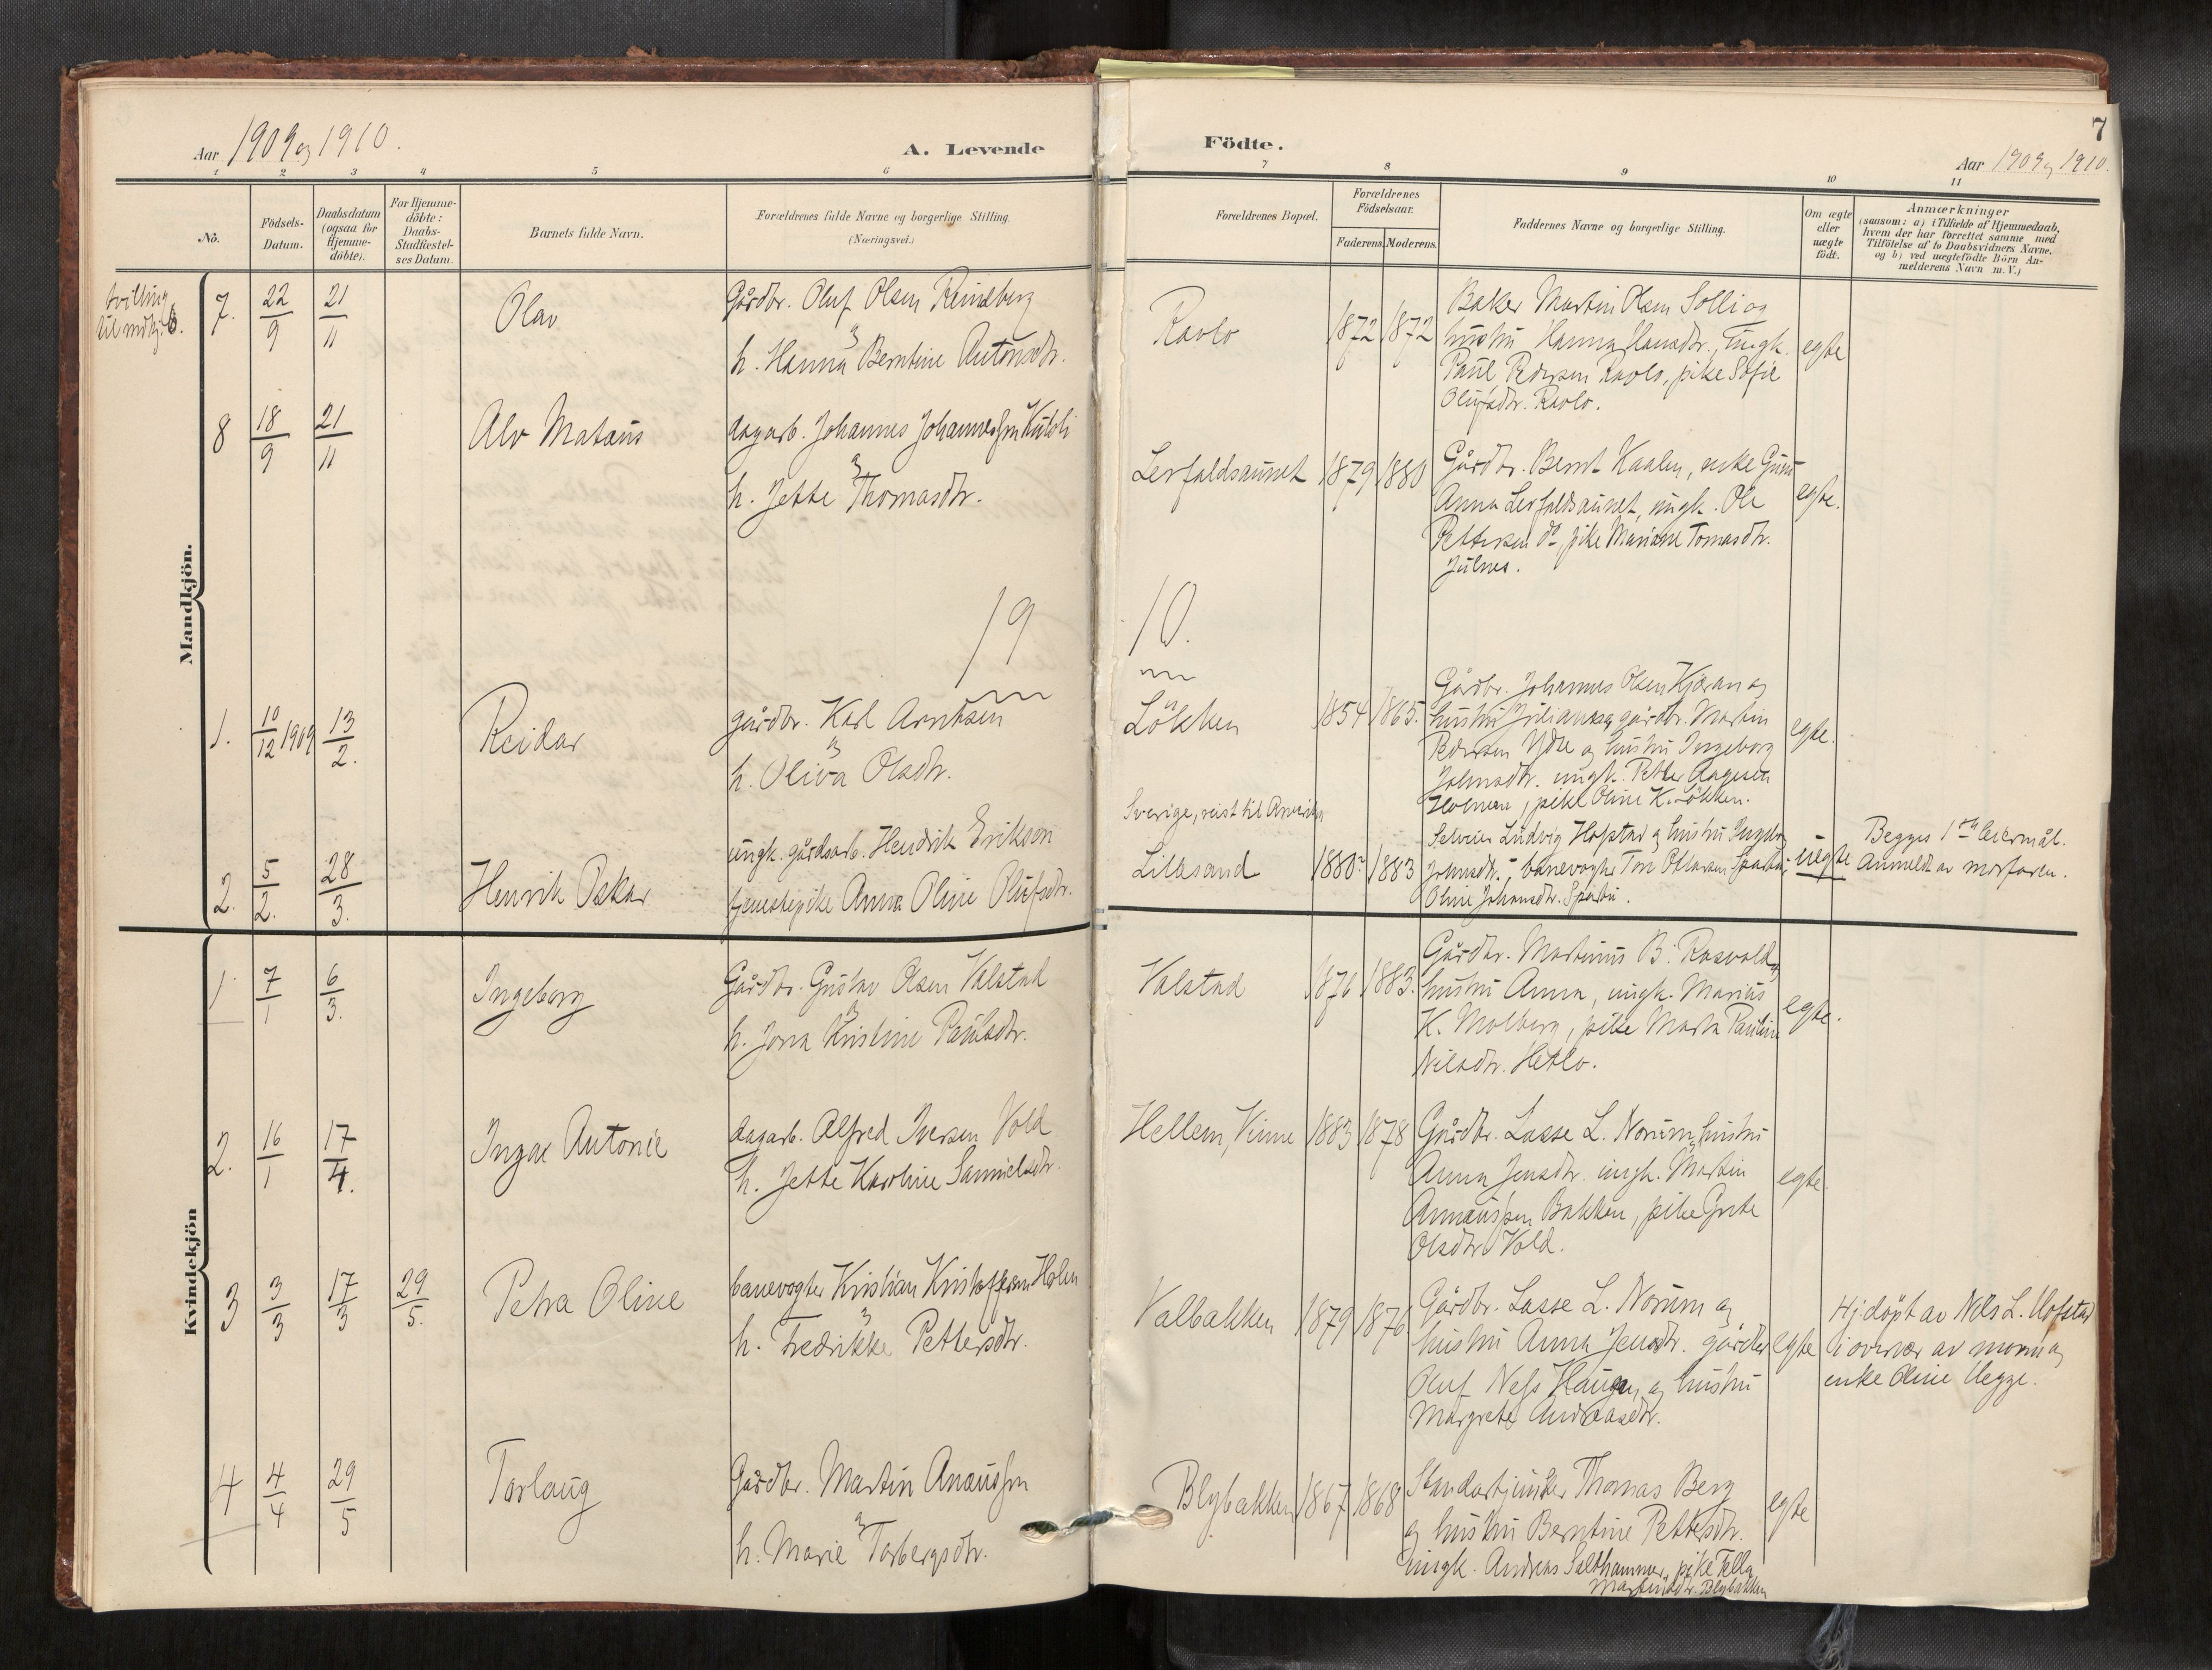 Aar 1909 og 1910.
A. Levende
Födte.
7
Aar 1909 og 1910.
1 2 3 4 5 6 7 8 9 10 11
No.
Födsels-
Datum.
Daabsdatum
(ogsaa for
Hjemme-
döbte).
For Hjemme-
döbte:
Daabs-
Stadfæstel-
ses Datum.
Barnets fulde Navn.
Forældrenes fulde Navne og borgerlige Stilling.
(Næringsvei.)
Forældrenes Bopæl.
Forældrenes
Födselsaar.
Faderens. Moderens.
Faddernes Navne og borgerlige Stilling.
Om ægte
eller
uægte
födt.
Anmærkninger
(saasom: a) i Tilfælde af Hjemmedaab,
hvem der har forrettet samme med
Tilföielse af to Daabsvidners Navne.
og b) ved uægtefödte Börn An-
melderens Navn m. V.)
Mandkjön.
tvilling
til mdkj. 6.
7. 22/9 21/11
Olav
Gårdbr. Oluf Olsen Reinsberg
og
h. Hanna Berntine Antonsdtr.
Ravlo
1872 1872
Baker Martin Olsen Solli og
hustru Hanna Hansdtr., Ungk.
Paul Pedersen Ravlo, pike Sofie
Olufsdtr. Ravlo.
egte
8 18/9 21/11
Alv Mataus
dagarb. Johannes Johannessen
og
h. Jette Thomasdtr.
Lerfaldsaunet
1879 1880
Gårdbr. Bernt Kaalen, enke Guru
Anna Lerfaldsaunet, ungk. Ole
Pettersen do pike Mariane Tomasdtr.
Julnes.
egte.
19
10.
1. 10/12 1909 13/2.
Reidar
gårdbr. Karl Arntsen
og
h. Oliva Olsdtr.
Lökken
1854 1865.
Gårdbr. Johannes Olsen Kjæran og
hustru Juliana, gårdbr. Martin
Pedersen Ydse og hustru Ingeborg
Johnsdtr. ungk. Petter Aagesen
Holmen, pike Oline K. Lökken.
egte.
2. 5/2. 28/3.
Henrik Oskar
ungk. gårdsarb. Hendrik Erikson
tjenestepike Anna Oline Olufsdtr.
Sverige, reist til Amerika
Lillesand
1880? 1883
Selveier Ludvig Hofstad og hustru Ingeborg
Johnsdtr., banevogter Tore Oskarsen
Oline Johansdtr.
uegte
Begges 1ste leiermål.
Anmeldt av morfaren.
Kvindekjön
1 7/1 6/3.
Ingeborg
Gårdbr. Gustav Olsen Valstad
og
h. Jona Kristine Paulsdtr.
Valstad
1876 1883.
Gårdbr. Martinus B. Rosvold og
hustru Anna, ungk. Marius
K. Molberg, pike Marta Pauline
Nilsdtr. Hetlo.
egte.
2. 16/1 17/4.
Inga Antonie
dagarb. Alfred Iversen Vold
h. Jette Karoline Samuelsdtr.
Hellem, Vinne
1883 1878
Gårdbr. Lasse L. Norum, hustru
Anna Jensdtr. ungk. Martin
Annæussen Bakken, pike Grete
Olsdtr Vold.
egte.
3 3/3 17/3 29/5.
Petra Oline
banevogter Kristian Kristoffersen Holen
og
h. Fredrikke Pettersdtr.
Valbakken
1879 1876
Gårdbr. Lasse L. Norum og
hustru Anna Jensdtr. gårdbr.
Oluf Ness Haugen, og hustru
Margrete Andreasdtr.
egte
Hj.döpt av Nels L. Hofstad
i overvær av moren og
enke Oline Hegge.
4 4/4 29/5
Torlaug
Gårdbr. Martin Anæussen
og
h. Marie Torbergsdtr.
Blybakken
1867 1868
Standartjunker Thomas Berg
og hustru Berntine Pettersdtr.
ungk. Andreas Salthammer, pike Tella
Martinsdtr. Blybakken
egte